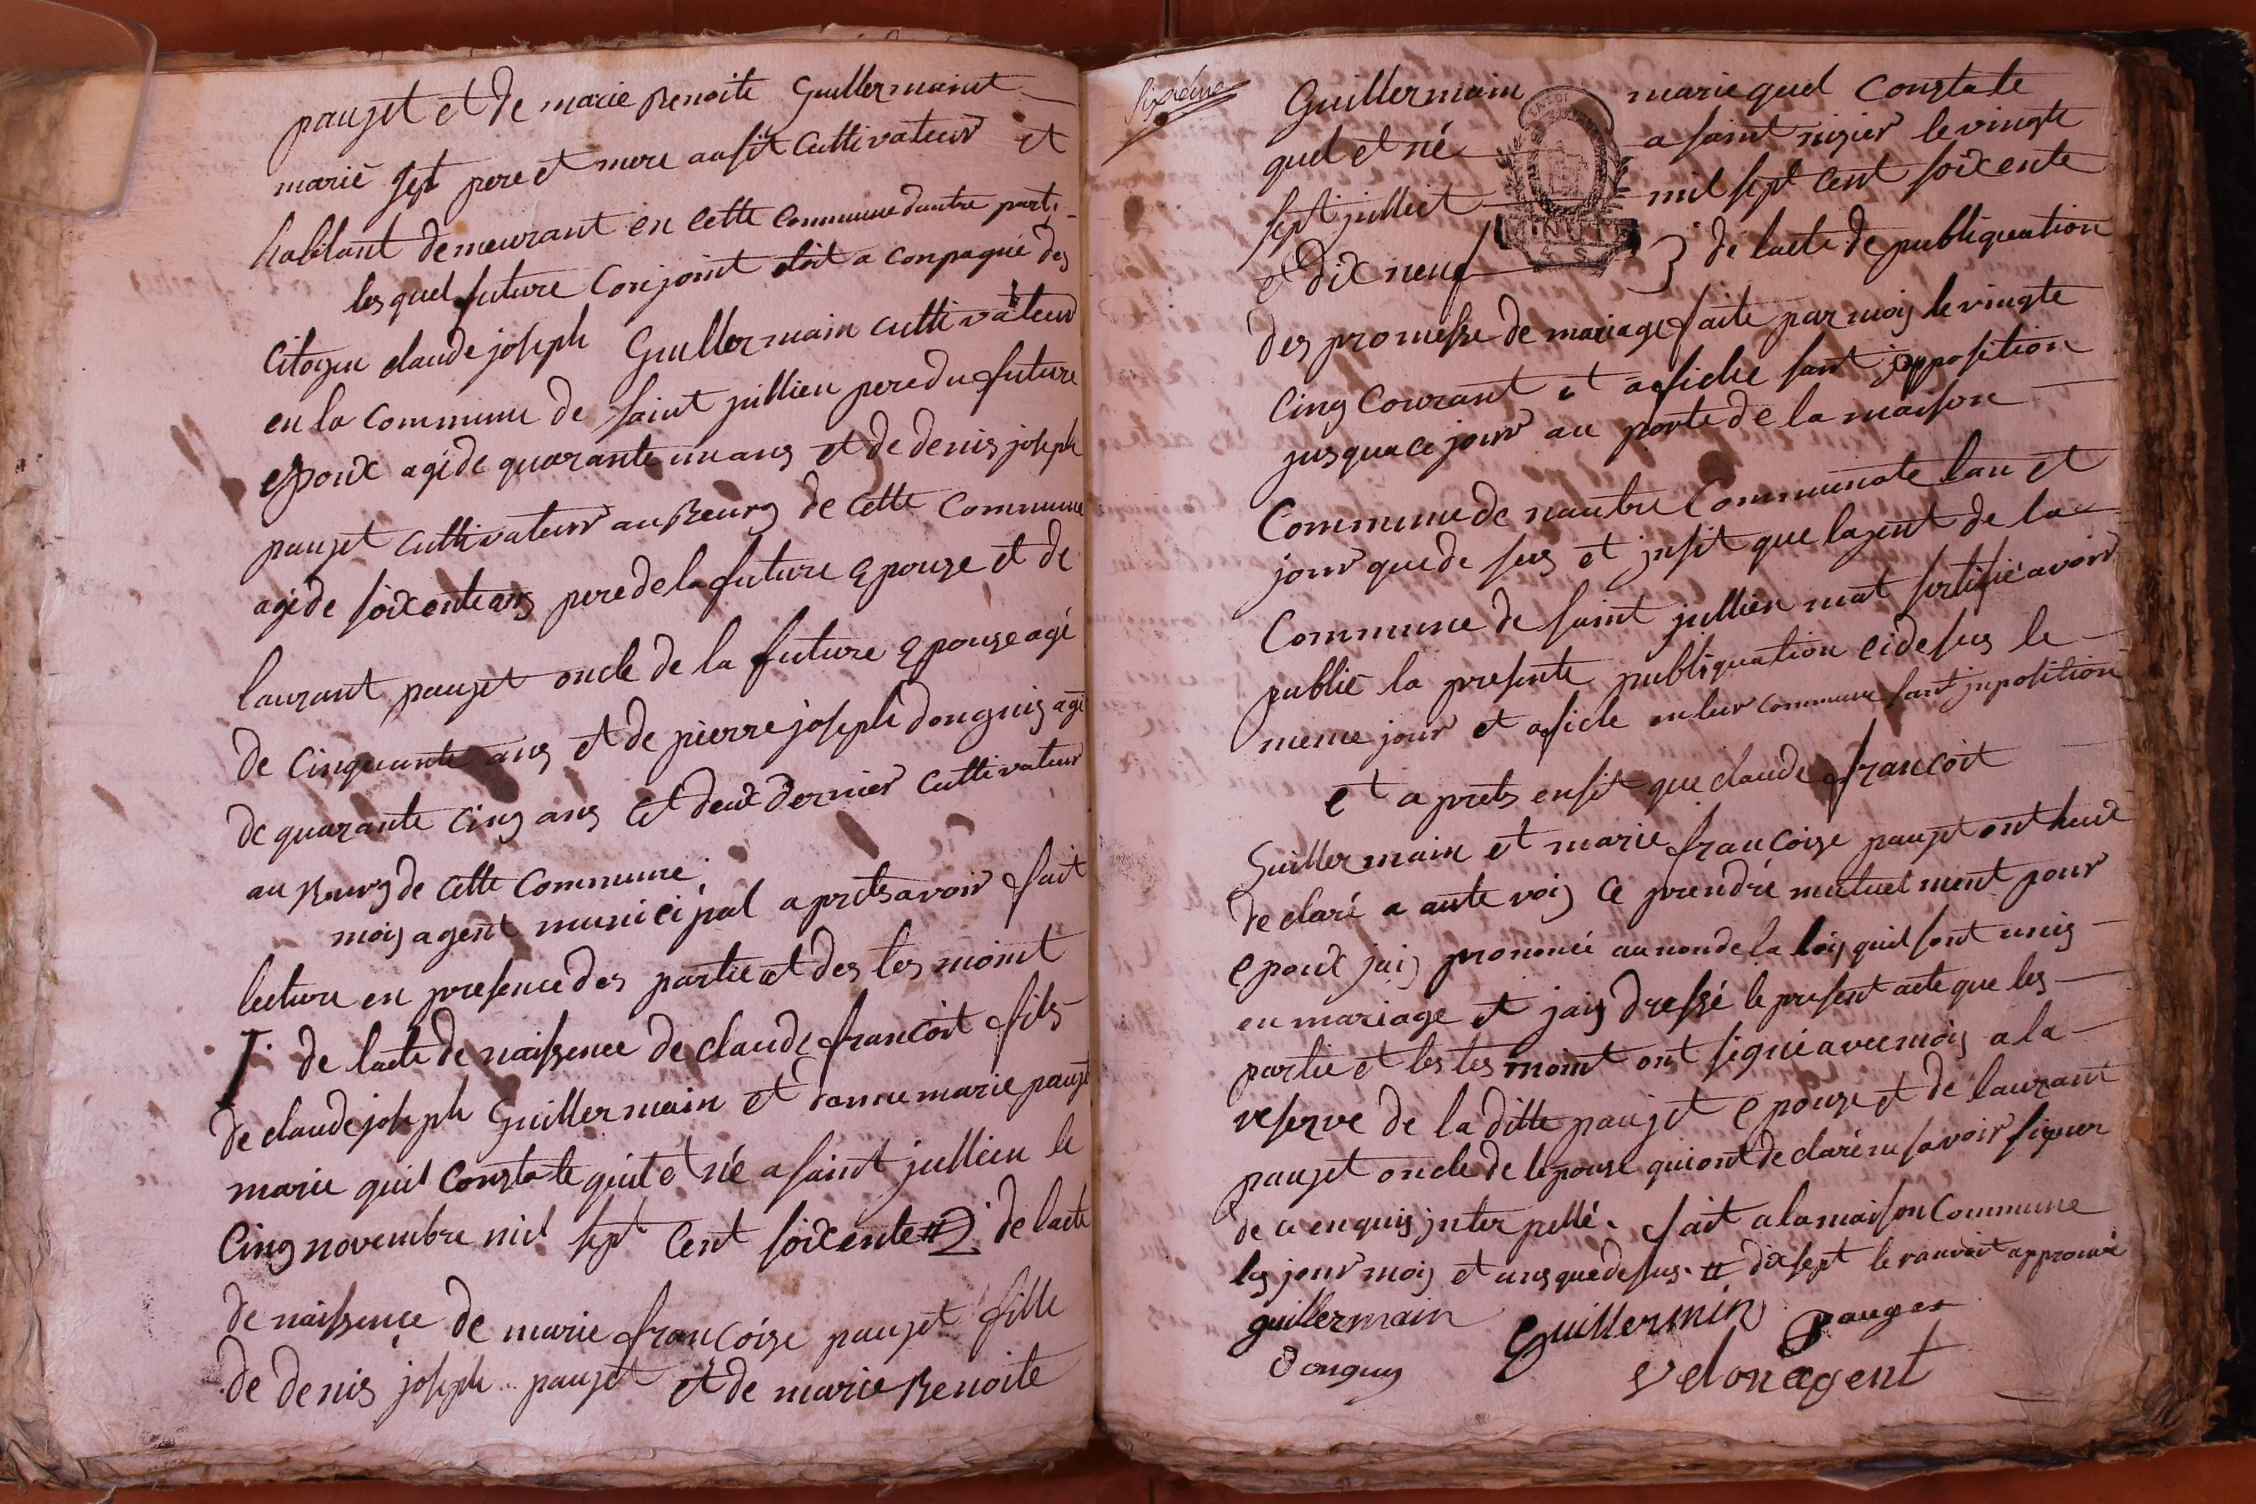 paujet et de marie Benoite Guillermaint
marié sest pere et mere ausit Cultivateur et
habitant demeurant en cette commune dautre parti
lesquel future Conjoint etoit a conpagné des
Citoyen claude joseph Guillermain cultivateur
en la commune de saint jullien pere du future
epoux agé de quarante un ans et de denis joseph
paujet cultivateur au Bourg de cette commune
agé de soixente ans pere de la future epouze et de
laurant paujet oncle de la future epouze agé
de cinquante ans et de pierre joseph donguis agé
de quarante cinq ans et deux dernier cultivateur
au Bourg de cette Commune
mois agent municipal a prets avoir fait
lecture en presence des partie et des tes moint
1° de lacte de naissence de claude francoit fils
de claude joseph Guillermain et danne marie paujet
marie quil constate quil et né a saint jullien le
cinq novembre mil sept cent soixente # 2° de lacte
de naissence de marie francoize paujet fille
de denis joseph paujet et de marie Benoite
sixieme
Guillermain marie quel constate
quel et né a saint nizier le vingte
sept julliet mil sept cent soixente
MINUTE
et dix neuf 3° de lacte de publiquation
des promesse de mariage faite par mois le vingte
cinq courant et afiche sant jopposition
jusqua ce jour au porte de la maison
Commune de nautre Communote lan et
jour que de sus et jnsit que lagent de la
Commune de saint jullien mat sertifié avoir
publié la presente publiquation cidesus le
meme jour et afiche en leur commune sant jnposition
et a prets ensit que claude francoit
Guillermain et marie francoize paujet ont heut
declaré a aute vois ce prendre mutuelment pour
epoux jais prononcé au nom de la lois quil sont unis
en mariage et jais dressé le present acte que les
partie et les tes moint ont signé avec mois a la
reserve de la ditte paujet epouze et de laurant
paujet oncle de lepouse qui ont declaré ne savoir signer
de ce enquis jnter pellé. fait a la maison Commune
les jour mois et ans que de sus. # dix sept le ranvoit approuvé
guillermain Guillermin Pauget
Donguy
Velon agent